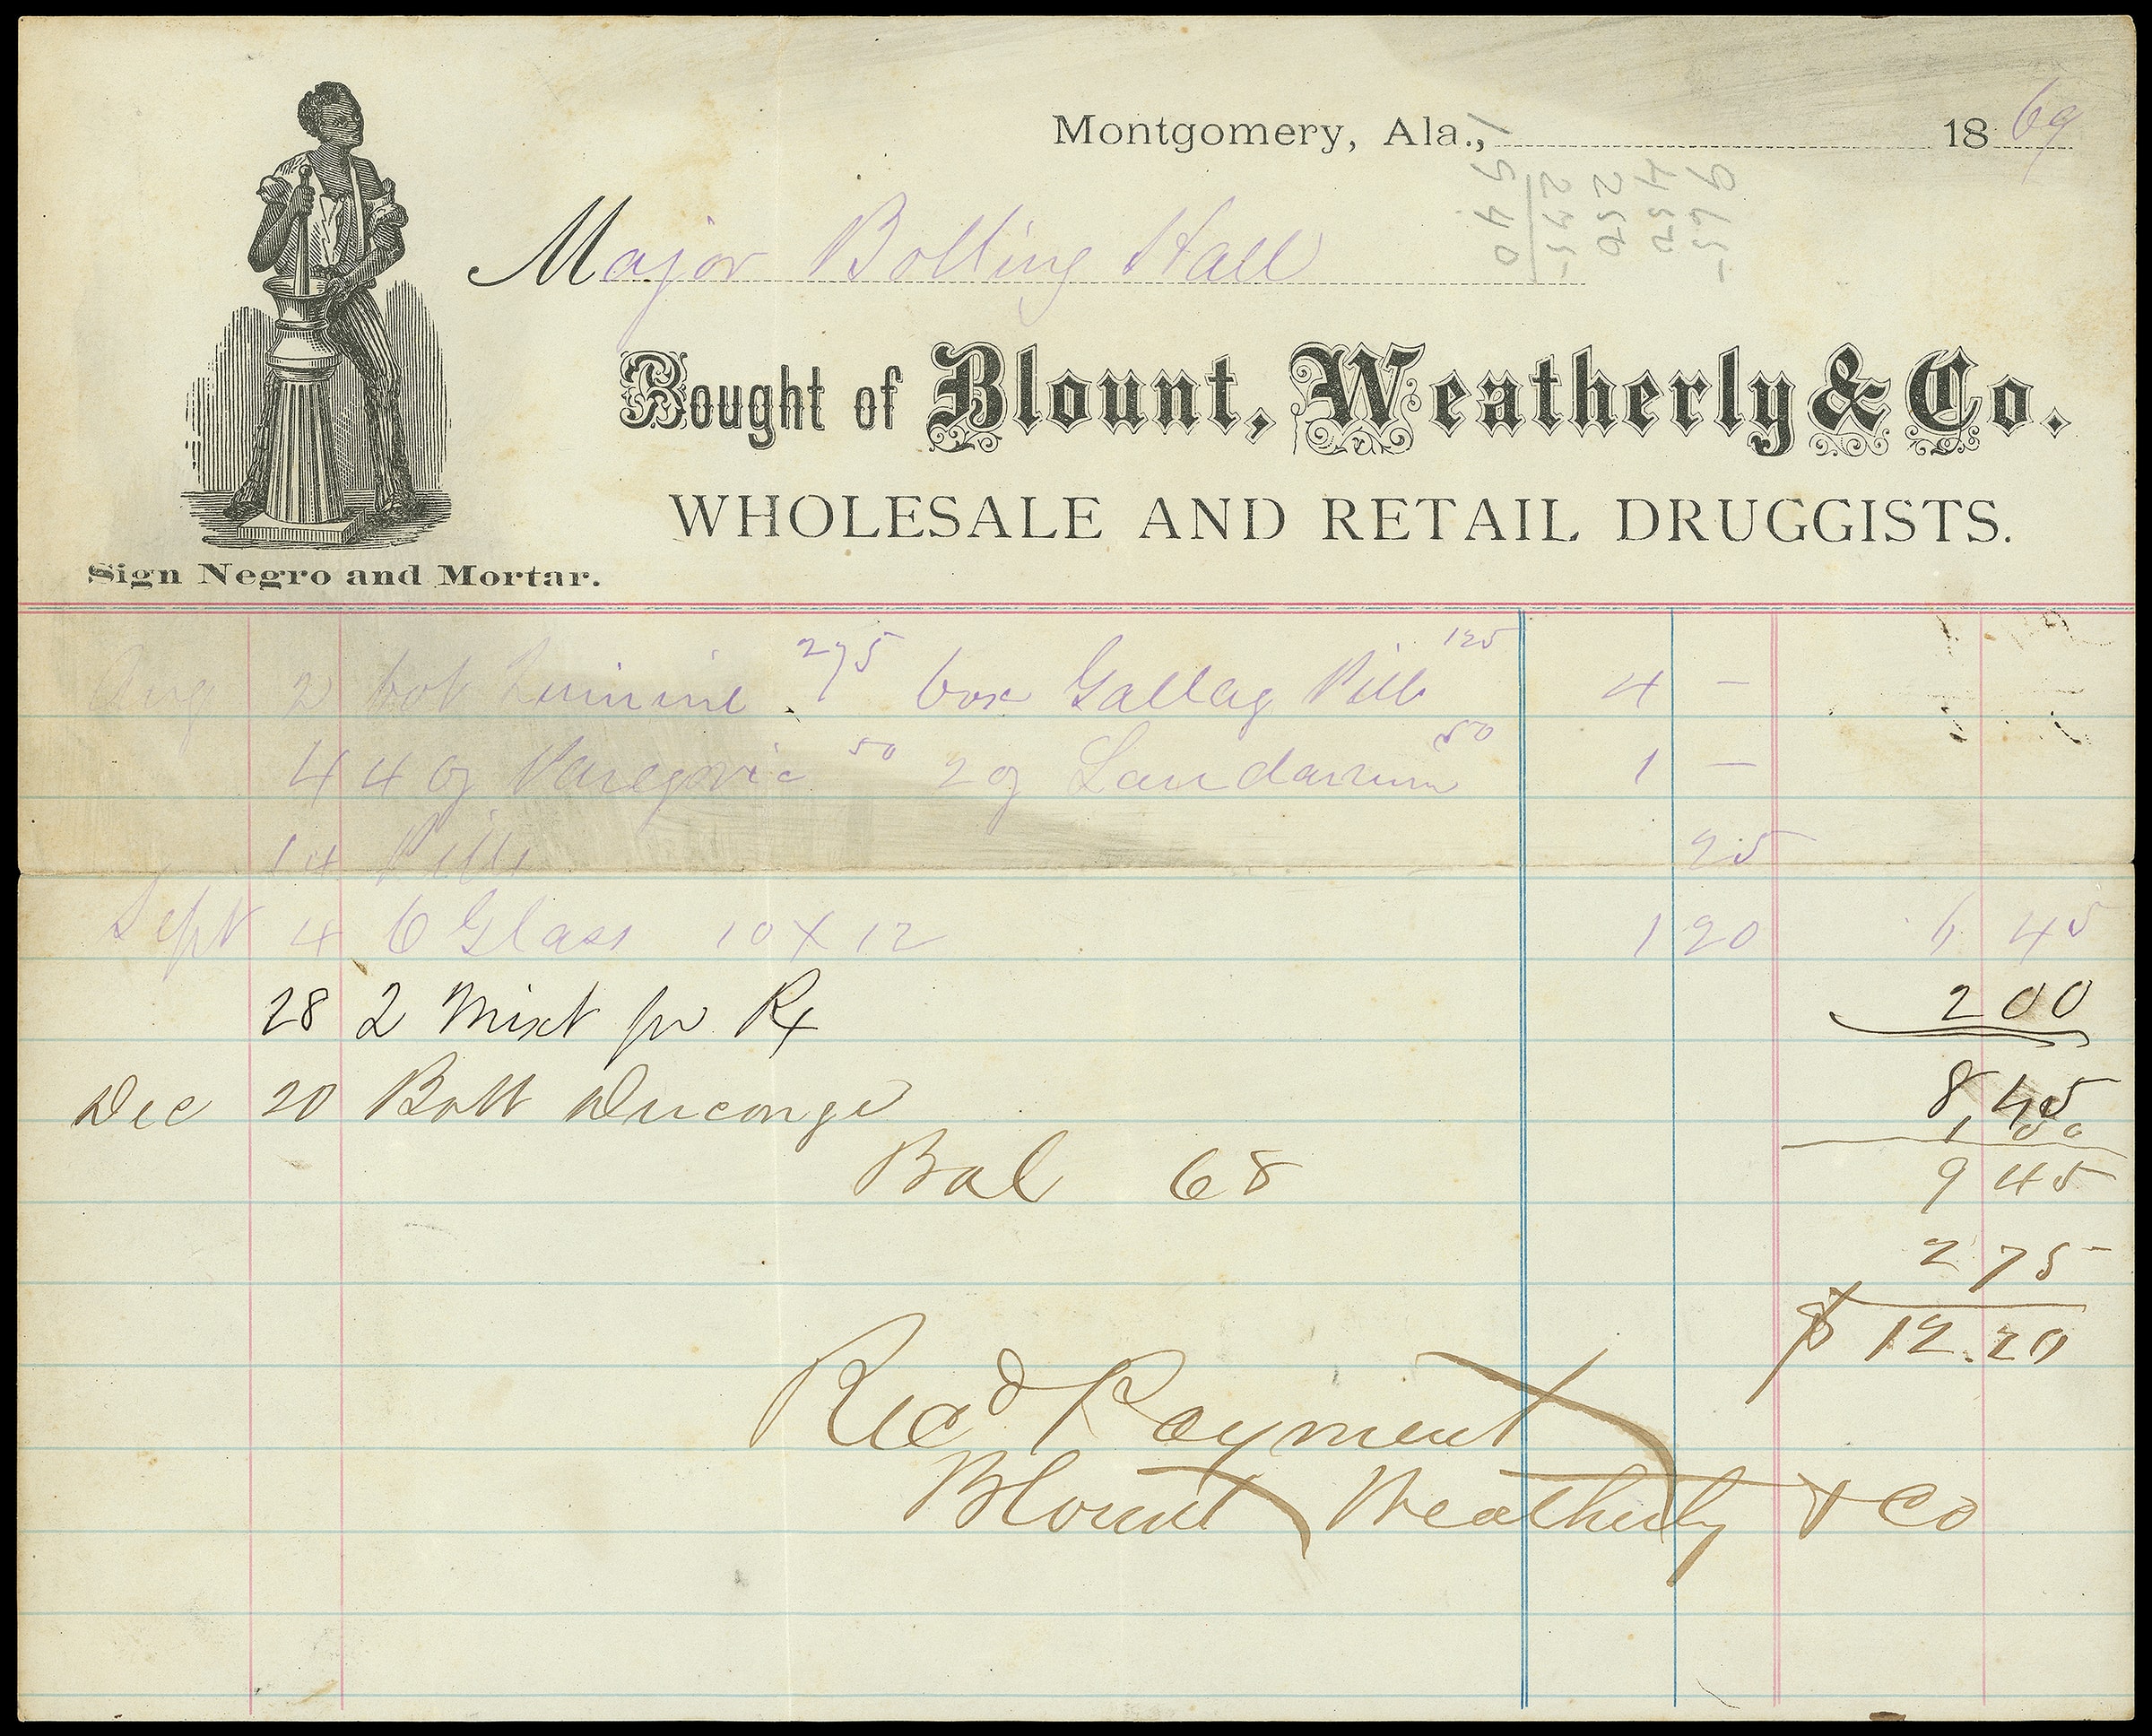 Montgomery, Ala., 1869
Major Bolling Hall
Bought of Blount, Weatherly & Co.
WHOLESALE AND RETAIL DRUGGISTS.
Sign Negro and Mortar.
Aug 2 bot Quinine 275 box Gallag Pills 125 4 –
4 4 oz Paregoric 50 2 oz Laudanum 50 1 –
14 Pills 25
Sept 4 6 Glass 10 X 12 1 20 6 45
28 2 Mixt pr Rx 2 00
8,45
Dec 20 Bott 1 00
9 45
Bal 68
2 75
$ 12.20
Recd Payment
Blount Weatherly & Co